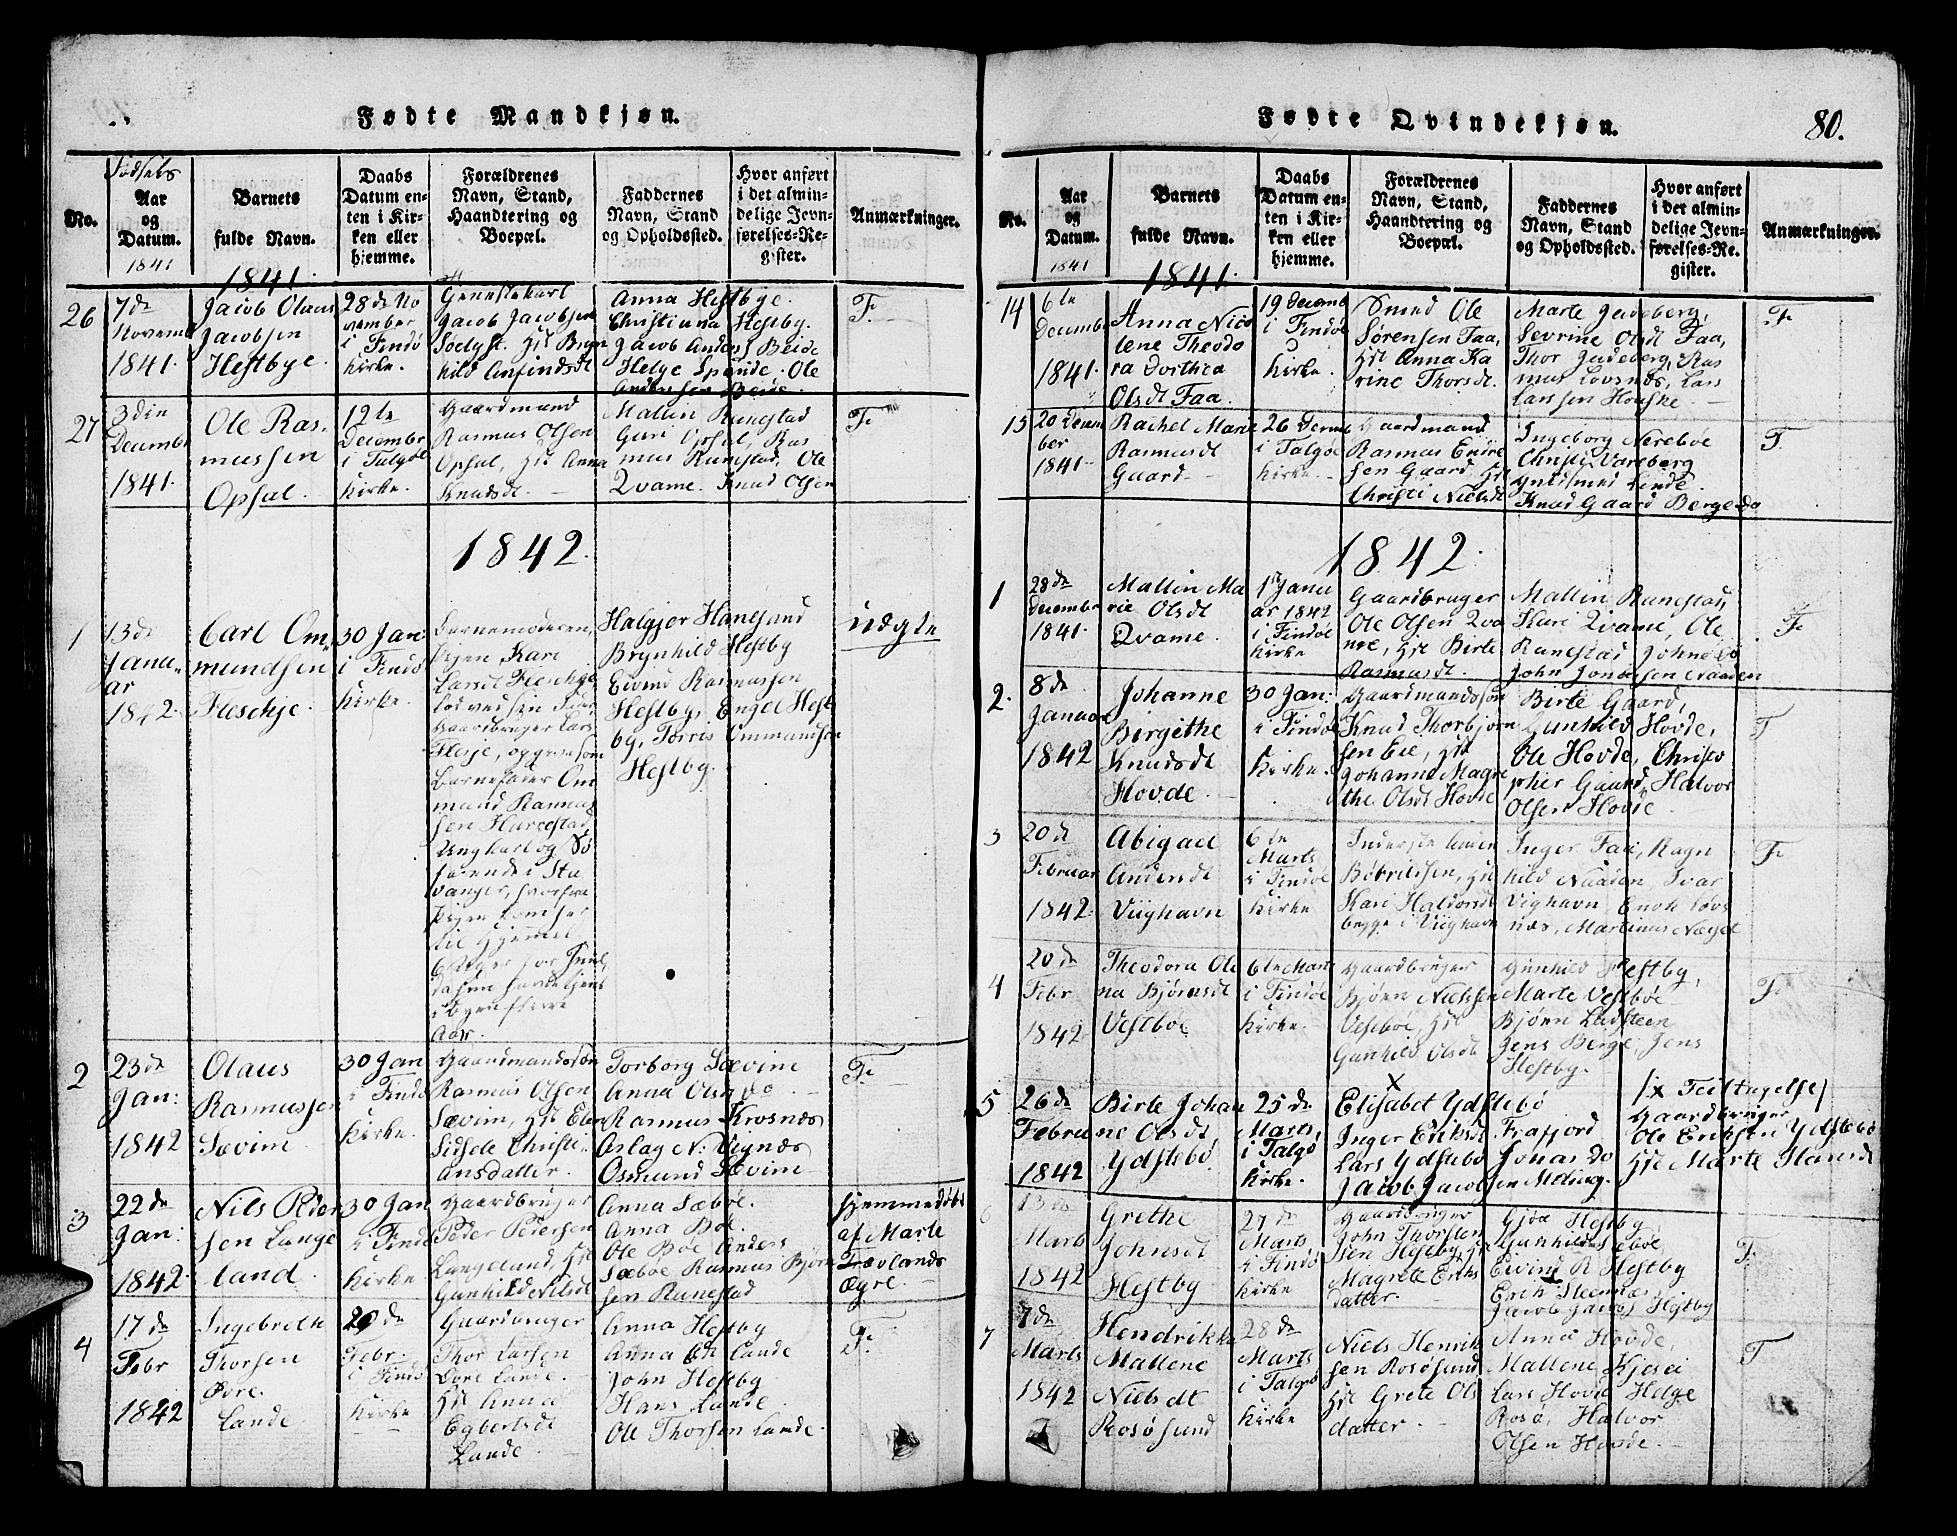 Fødte Mandkjøn.
No.
Fødsels
Aar
og
Datum.
1841
Barnets
fulde Navn.
1841.
Daabs
Datum en-
ten i Kir-
ken eller
hjemme.
Forældrenes
Navn, Stand,
Haandtering og
Boepæl.
Faddernes
Navn, Stand
og Opholdssted.
Hvor anført
i det almin-
delige Jevn-
førelses-Re-
gister.
Anmærkninger.
26
7de
Novemb
1841.
Jacob Olaus
Jacobsen
Hestbye.
28de No
vember
i Findø
Kirke.
Jacob Jacobsen
Anna Hestbye.
Christianna Hestby.
Jacob Anders Beide
Helge Spande. Ole
Andersen Beide.
F.
27
3die
Decembr
1841.
Ole Ras-
mussen
Opsal.
12te
Decembr
i Talgøe
Kirke.
Gaardmand
Rasmus Olsen
Opsal, Hst Anna
Knudsdt.
Mallin Runestad
Guri Opsal, Ras
mus Runestad, Ole
Qvame. Knud Olsen
F.
1842.
1
13de
Janu-
ar
1842.
Carl Om-
mundsen
Fleskje.
30 Jan:
i Findø
Kirke.
Barnemoderen,
Pigen Kari
Larsdt Fleskje
Gaardbruger Lars
Barnefader Om
mund Rasmus
sen
Ungkarl og Sø
farende i Sta
vanger,
til Hjemmet
Aar.
Halgjer Hanesand
Brynhild Hestby
Eivind Rasmussen
Hestby, Engel Hest
by, Torris Ommundsen
Hestby.
Uægte
2
23de
Jan:
1842
Olaus
Rasmussen
Sævim
30 Jan
i Findø
Kirke.
Gaardmandssøn
Rasmus Olsen
Sævim, Hst Elen
Sidsele Christi-
ansdatter.
Torborg Sævim
Anna Olsn do
Rasmus Krosnæs
Aslag N: Vignæs
Osmund Sævim
F.
3
22de
Jan:
1842.
Nils Peder
sen Lange
land.
30 Jan
i Findø
Kirke.
Gaardbruger
Peder Pedersen
Langeland, Hst
Gunhild Nilsdt
Anna Sæbøe.
Anna Boe.
Ole Boe Anders
Sæbøe Rasmus Bjørn
sen Runestad
Hjemmedøbt
af Marte
Tævlands
Øgre.
4
17de
Febr
1842
Ingebreth
Thorsen
Øvre
Lande
20de
Febr.
i Findø
Kirke
Gaardbruger
Thor Larsen
Øvre Lande.
Hst Anna
Egbertsdt
Lande.
Anna Hestby
Anna Lande
John Hestby
Hans Lande
Ole Thorsen Lande.
F.
Fødte Qvindekjøn.
80.
No.
Aar
og
Datum.
1841
Barnets
fulde Navn.
1841.
Daabs
Datum en-
ten i Kir-
ken eller
hjemme.
Forældrenes
Navn, Stand,
Haandtering og
Boepæl.
Faddernes
Navn, Stand
og Opholdssted.
Hvor anført
i det almin-
delige Jevn-
førelses-Re-
gister.
Anmærkninger.
14
6te
Decembr
1841.
Anna Nico
lene Theodo
ra Dorthea
Olsdt Faa.
19 Decemb
i Findøe
Kirke.
Smed Ole
Sørensen Faa,
Hst Anna Ka
rine Thorsdt.
Marte Judeberg,
Sevrine Olsdt Faa,
Thor Judeberg, Ras
mus Lovsnæs, Lars
Larssen Houske.
F.
15
20 Decem
ber
1841.
Rachel Marie
Rasmusdt
Gaard
26 Decmb
i Talgøe
Kirke.
Gaardmand
Rasmus Endre
sen Gaard, Hst
Christi Nielsdt
Ingeborg Nerebøe
Christi Vareberg
Lende.
Knud Gaard Berge do
F.
1842.
1
28de
Decembr
1841.
Mallin Ma
rie Olsdt
Qvame.
1st Janu
ar 1842
i Findøe
Kirke
Gaardbruger
Ole Olsen Qva
me, Hst Birte
Rasmusdt.
Mallin Runestad,
Kari Qvame, Ole
Runestad Johne do
John Jonassen Naaden
F.
2.
8de
Januar
1842
Johanne
Birgithe
Knudsdt
Hovde.
30 Jan:
i Findøe
Kirke.
Gaardmandssøn
Knud Thorbjørn
sen Eie, Hst
Johanne Magre
the Olsdt Hovde
Birte Gaard,
Gunhild Hovde,
Ole Hovde, Christo
pher Gaard, Halvor
Olsen Hovde.
F
3
20de
Februar
1842.
Abigael
Andersdt
Viighavn
6te
Marts
i Findøe
Kirke
Inderste Anders
Bøtvildsen, Hst
Kari Haldorsdt
begge i Viighavn
Inger Faa, Ragn
hild Naaden, Ivar
Vighavn Enok Lovs
næs, Martinus Nægel
F.
4
20de
Febr
1842
Theodora Ole
na Bjørnsdt
Vestbøe
6te Mart
i Findøe
Kirke.
Gaardbruger
Bjørn Nielssen
Vestbøe, Hst
Gunhild Olsdt
Gunhild Hestby,
Marte Vestbøe
Bjørn Ladsteen
Jens Berge, Jens
Hestby.
F.
5
26de
Febru
1842
Birte Johan
ne Olsdt,
Ydstebø
25de
Marts,
i Talgø
Kirke.
x
Elisabet Ydstebø
Inger Eriksdt Frafjord
Lars Ydstebø Jonas do
Jacob Jacobsen Meling.
/x Feiltagelse/
Gaardbruger
Ole Eriksen Ydstebø
Hst Marte Hansdt
6
13de
Marts
1842
Grethe
Johnsdt
Hestby
27de
Marts
i Findø
Kirke
Gaardbruger
John Thorsten
sen Hestby, Hst
Magrete Eriks
datter.
Gjøa Hestby,
Gunhild Sæbøe,
Eivind R Hestby
Erik Steennæs
Jacob Jacobs Hestby
F.
7
7de
Marts
1842
Hendrikke
Mallene
Nielsdt
Rosøsund
28de
Marts
i Talgø
Kirke
Niels Henrik
sen Rosøsund
Hst Grete Ols
datter.
Anna Hovde,
Mallene Kjesei
Lars Hovde Helge
Rosø, Halvor
Olsen Hovde.
F